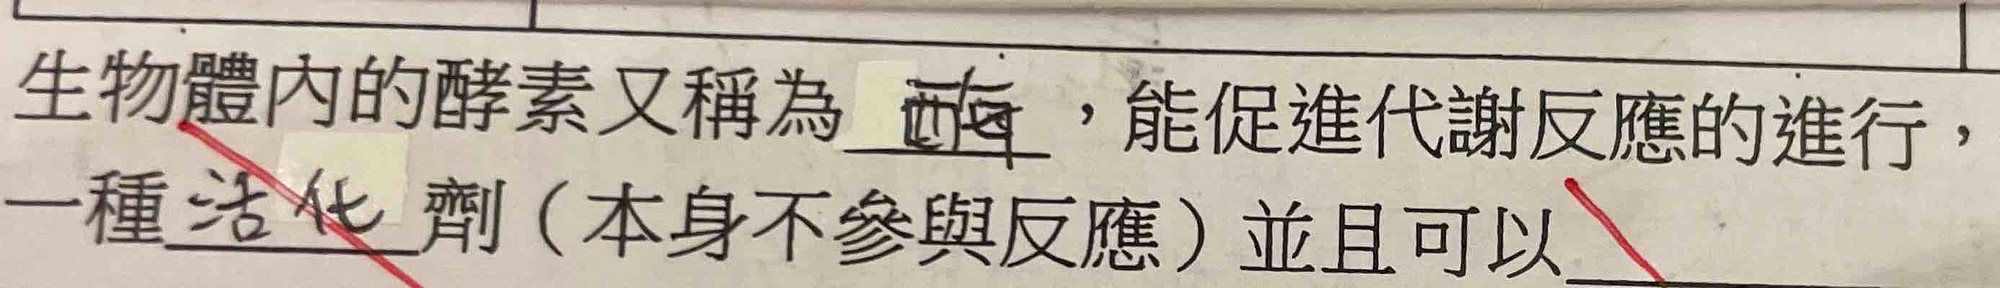 生物體內的酵素又稱為 酶 ，能促進代謝反應的進行，
一種 活化 劑（本身不參與反應）並且可以